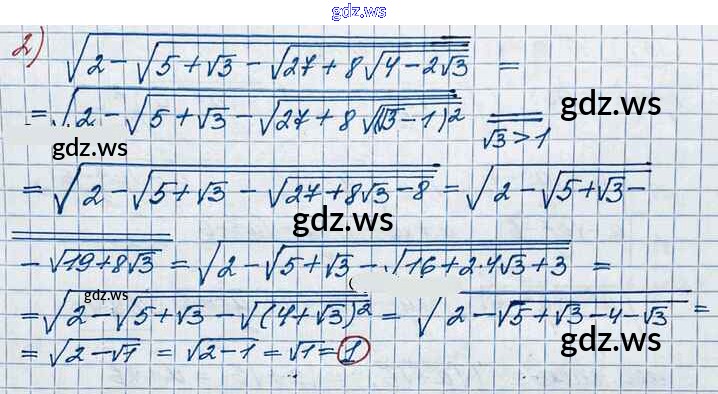 gdz.ws
2) √(2 − √(5 + √3 − √(27 + 8√(4 − 2√3)))) =
gdz.ws
= √(2 − √(5 + √3 − √(27 + 8√((√3 − 1)²)))) √3 > 1
gdz.ws
gdz.ws
= √(2 − √(5 + √3 − √(27 + 8√3 − 8))) = √(2 − √(5 + √3 −
gdz.ws
− √(19 + 8√3) = √(2 − √(5 + √3 − √(16 + 2·4√3 + 3))) =
gdz.ws
= √(2 − √(5 + √3 − √((4 + √3)²))) = √(2 − √5 + √3 − 4 − √3 =
gdz.ws
= √(2 − √1) = √(2 − 1) = √1 = 1